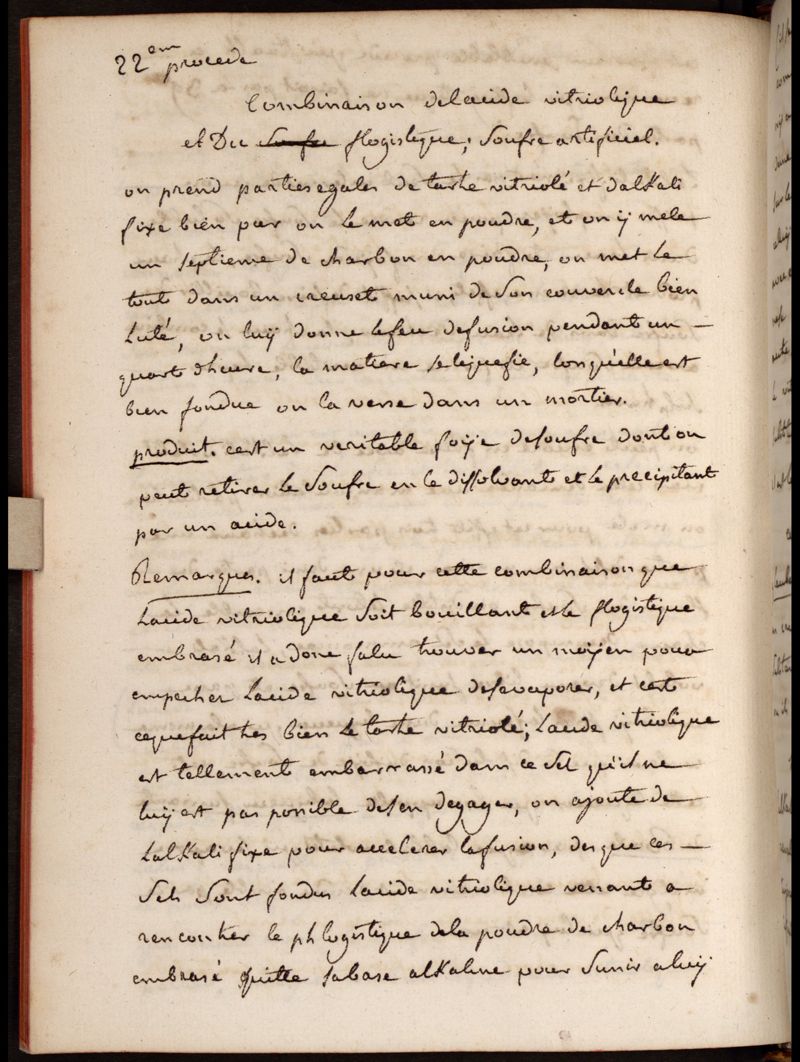 22em procede
Combinaison delacide vitriolique
et Du Soufre flogistique; Soufre artificiel.
on prend partiesegales de tartre vitriolé et dalkali
fixe bien pur on le met en poudre, et on ÿ mele
un septieme de charbon en poudre, on met le
tout dans un creuset muni de Son couvercle bien
Luté, on luÿ donne lefeu defusion pendant un —
quart dheure, la matiere seliquefie, lorsquelle est
bien fondue on la verse dans un mortier.
produit. cest un veritable foÿe desoufre dont on
peut retirer le Soufre en le dissolvant et le precipitant
par un acide.
Remarques. il faut pour cette combinaison que
Lacide vitriolique Soit bouillant et le flogistique
embrasé il a donc falu trouver un moÿen pour
empecher Lacide vitriolique desevaporer, et cest
cequefait tres bien le tartre vitriolé; Lacide vitriolique
est tellement embarrassé dans ce Sel qu'il ne
luÿ est pas possible desen degager, on ajoute de
Lalkali fixe pour accelerer lafusion, des que ces —
Sels Sont fondus Lacide vitriolique venant a
rencontrer le phlogistique dela poudre de charbon
embrasé quitte sabase alkaline pour Sunir a luÿ